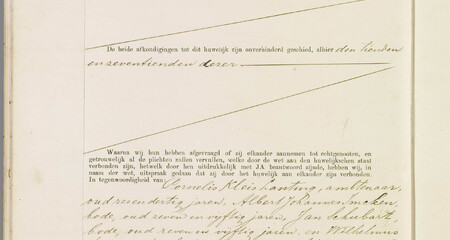 De beide afkondigingen tot dit huwelijk zijn onverhinderd geschied, alhier den tienden
en zeventienden dezer
Waarna wij hun hebben afgevraagd of zij elkander aannemen tot echtgenooten, en
getrouwelijk al de plichten zullen vervullen, welke door de wet aan den huwelijkschen staat
verbonden zijn, hetwelk door hen uitdrukkelijk met JA beantwoord zijnde, hebben wij, in
naam der wet, uitspraak gedaan dat zij door het huwelijk aan elkander zijn verbonden.
In tegenwoordigheid van Cornelis Kleis ambtenaar,
oud zeven dertig jaren, Albert Johannes
bode, oud zeven en vijftig jaren, Jan Schubart
bode, oud zeven en vijftig jaren, en Wilhelmus